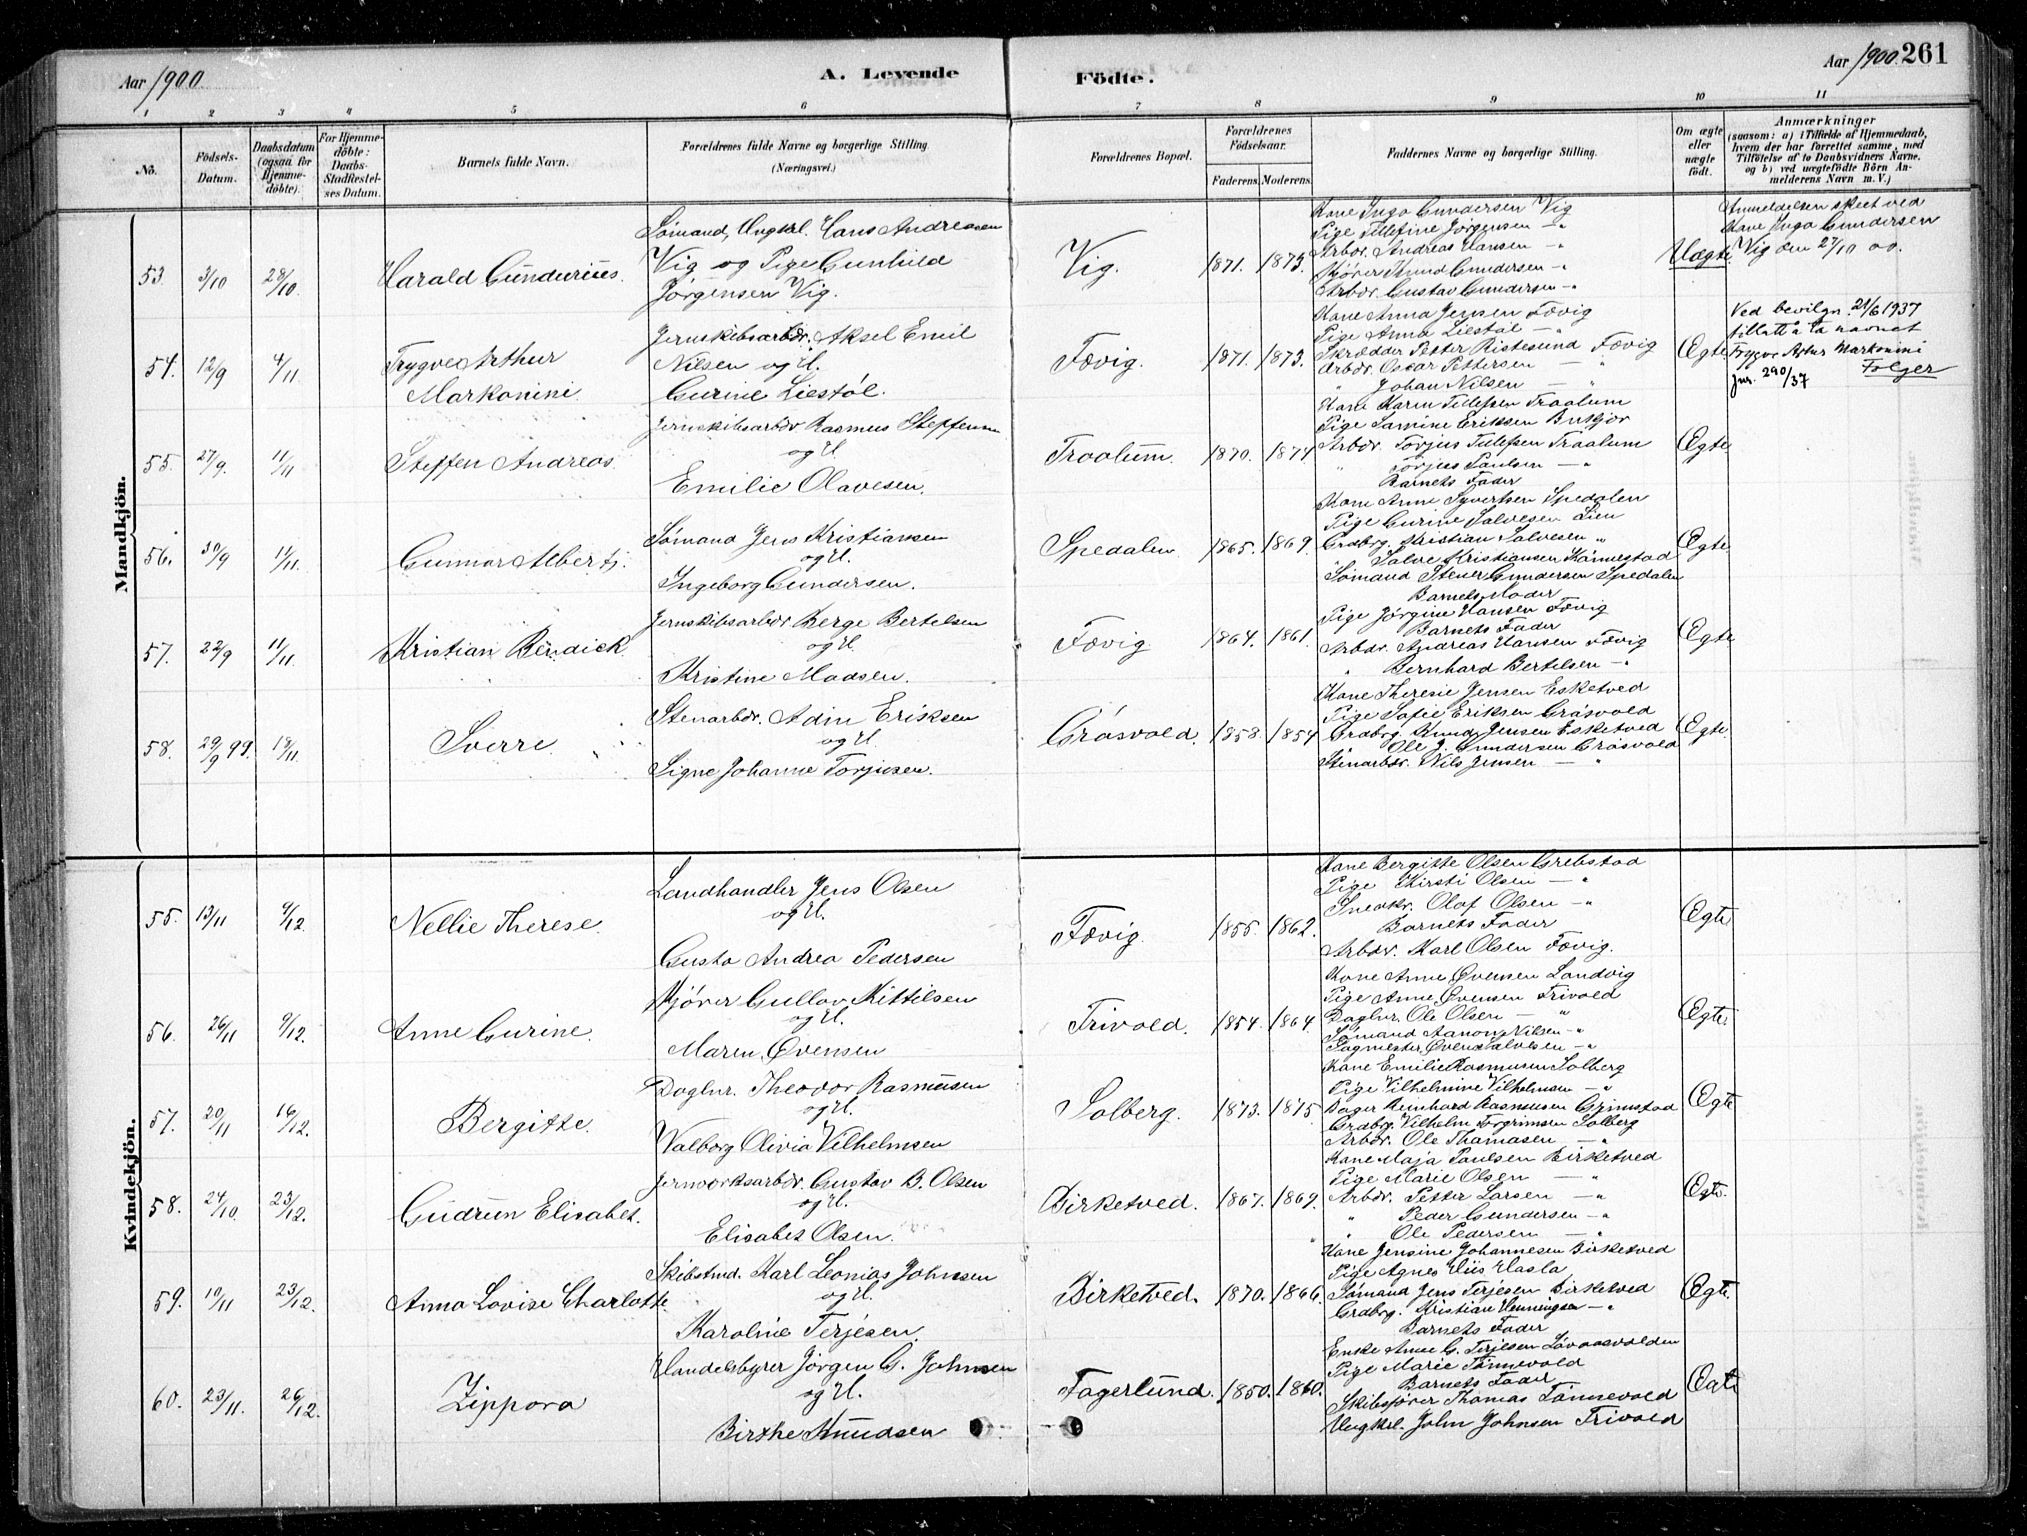 Aar 1900
A. Levende
Födte.
Aar 1900. 261
1 2 3 4 5 6 7 8 9 10 11
No.
Födsels-Datum.
Daabsdatum (ogsaa for Hjemmedöbte).
For Hjemmedöbte: Daabs-Stadfæstelses Datum.
Barnets fulde Navn.
Forældrenes fulde Navne og borgerlige Stilling. (Næringsvei.)
Forældrenes Bopæl.
Forældrenes Födselsaar.
Faderens. Moderens.
Faddernes Navne og borgerlige Stilling.
Om ægte eller uægte födt.
Anmærkninger
(saasom: a) i Tilfælde af Hjemmedaab, hvem der har forrettet samme, med Tilföielse af to Daabsvidners Navne, og b) ved uægtefödte Börn Anmelderens Navn m. V.)
Mandkjön.
53. 3/10 28/10 Harald Gunderius.
Sömand, Ungkl. Hans Andreasen
Vig og Pige Gunhild
Jörgensen Vig.
Vig. 1871. 1873.
Kone Inga Gundersen Vig
Pige Tilletine Jörgensen — "
Arbdr. Andreas Hansen — "
Kjörer Knud Gundersen — "
Arbdr. Gustav Gundersen — "
Uægte
Anmeldelsen skeet ved
Kone Inga Gundersen
Vig den 27/10 00.
54. 12/9 4/11 Trygve Arthur
Markonini
Jernskibsarbdr. Aksel Emil
Nilsen og H.
Gurine Liestöl.
Fævig. 1871. 1873.
Kone Anna Jensen Fævig
Pige Anna Liestöl — "
Skrædder Petter Ristesund Fævig
Arbdr. Oscar Pettersen — "
" Johan Nilsen — "
Egte
Ved bevilgn. 21/6 1937
tillatt å ta navnet
Trygve Artur Markonini
Folger
Jnr. 290/37
55. 27/9. 11/11 Steffen Andreas.
Jernskibsarbdr Rasmus Steffensen
og H.
Emilie Olavesen.
Traalum. 1870. 1874
Kone Karen Tellefsen Traalum
Pige Samine Eriksen
Arbdr. Torjus Tellefsen Traalum
" Torjus Paulsen — "
Barnets Fader
Egte
56. 30/9 11/11. Gunnar Albert.
Sömand Jens Kristiansen
og H.
Ingeborg Gundersen.
Spedalen 1865. 1869.
Kone Anne Syvertsen Spedalen
Pige Gurine Salvesen Lien
Grdbrg. Kristian Salvesen "
" Salve Kristiansen
Sömand Stener Gundersen Spedalen
Egte
57. 22/9 11/11. Kristian Bendick.
Jernskibsarbdr Berge Bertelsen
og H.
Kristine Madsen.
Fævig 1864. 1861.
Barnets Moder
Pige Jörgine Hansen Fævig
Barnets Fader
Arbdr. Andreas Hansen Fævig
" Bernhard Bertelsen — "
Egte
58. 29/9 99. 18/11. Sverre.
Stenarbdr. Adin Eriksen
og H.
Signe Johanne Torjusen.
Gråsvold. 1858. 1854
Kone Theresie Jensen Esketved
Pige Sofie Eriksen Gråsvold
Grdbrg. Knud Jensen Esketved
Ole J. Gundersen Gråsvold
Stenarbdr. Nils Jensen — "
Egte.
Kvindekjön.
55. 13/11 9/12. Nellie Therese.
Landhandler Jens Olsen
og H.
Gusta Andrea Pedersen
Fævig. 1855. 1862.
Kone Bergitte Olsen Grebstad
Pige Kirsti Olsen — "
Snedkr. Olaf Olsen — "
Barnets Fader
Arbdr. Karl Olsen Fævig.
Egte
56. 26/11 9/12. Anne Gurine.
Kjörer Gullov Kittilsen
og H.
Maren Övensen
Trivold. 1854. 1864
Kone Anne Övensen Landvig
Pige Anne Övensen Trivold
Daglnr. Ole Olsen — "
Sömand Aanon Nilsen — "
Sagmester Övend Salvesen — "
Egte
57. 20/11 16/12. Bergitte.
Daglnr. Theodor Rasmussen
og H.
Valborg Olivia Vilhelmsen
Solberg. 1873. 1875.
Kone Emilie Rasmussen Solberg
Pige Vilhelmine Vilhelmsen — "
Bager Reinhard Rasmussen Grimstad
Grdbrg. Vilhelm Torgrimsen Solberg
Arbdr. Ole Thomasen — "
Egte
58. 24/10. 23/12. Gudrun Elisabet.
Jernværksarbdr. Gustav B. Olsen
og H.
Elisabet Olsen.
Birketved. 1867. 1869.
Kone Maja Paulsen Birketved
Pige Marie Olsen — "
Arbdr. Petter Larsen — "
" Peder Gundersen — "
" Ole Pedersen — "
Egte.
59. 10/11 23/12. Anna Lovise Charlotte
Skibstmd. Karl Leonias Johnsen
og H.
Karoline Terjesen.
Birketved. 1870. 1866.
Kone Jensine Johannesen Birketved
Pige Agnes Hasla
Sömand Jens Terjesen Birketved
Grdbrg. Kristian Henningsen — "
Barnets Fader
Egte.
60. 23/11. 26/12. Zippora
Handelsbyrer Jörgen G. Johnsen
og H.
Birthe Knudsen
Fagerlund. 1850. 1860.
Enke Anne G. Terjesen Lövaasvolden
Pige Marie Tönnevold
Barnets Fader
Skibsförer Thomas Tönnevold
Ungkl. John Johnsen Trivold
Egte